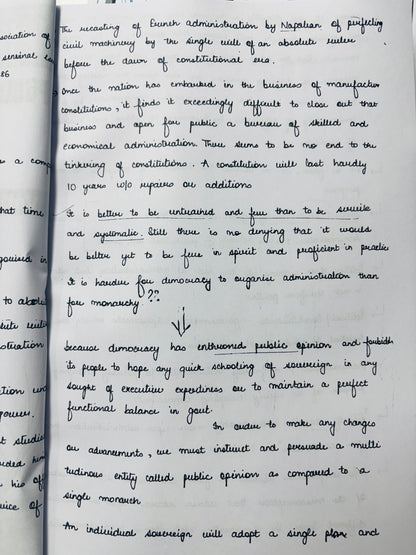 sociation of
seminal es
86
a comp
hat time
ganised in
to absolu
olute rule
stration
tion un
power.
t studi
rded him
his off
vice of
The recasting of French administration by Napolian of perfecting
civil machinery by the single will of an absolute ruler
before the dawn of constitutional era.
Once the nation has embarked in the business of manufactur
constitutions, it finds it exceedingly difficult to close out that
business and open for public a bureau of skilled and
economical administration. There seems to be no end to the
tinkering of constitutions. A constitution will last hardly
10 years w/o repairs or additions
It is better to be untrained and free than to be servile
and systematic. Still there is no denying that it would
be better yet to be free in spirit and proficient in practice
It is harder for democracy to organise administration than
for monarchy ??
because democracy has enthroned public opinion and forbids
its people to hope any quick schooling of sovereign in any
sought of executive expertiness or to maintain a perfect
functional balance in govt.
In order to make any changes
or advancements, we must instruct and persuade a multi
tudinous entity called public opinion as compared to a
single monarch
An individual sovereign will adopt a single plan and